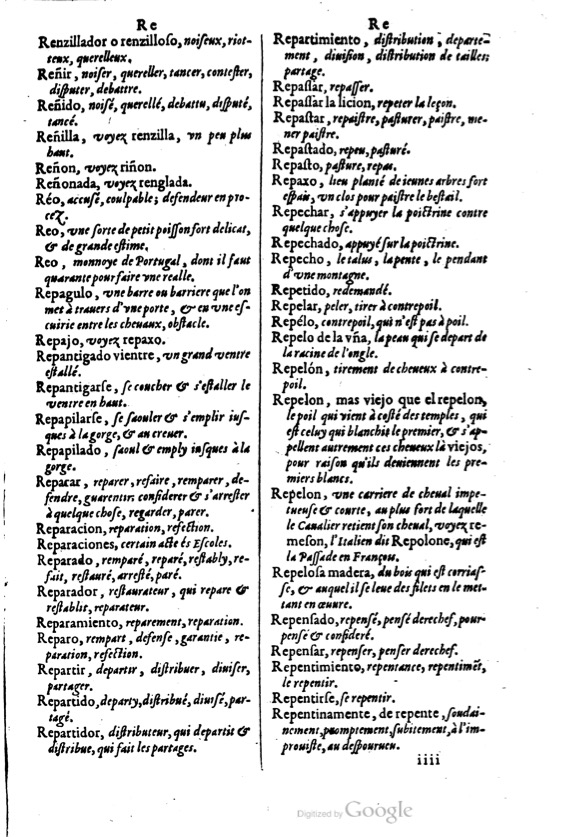 Re
Renzillador o renzilloſo, noiſeux, riot-
teux, querelleux.
Reñir, noiſer, quereller, tancer, conteſter,
diſputer, debattre.
Reñido, noiſé, querellé, debattu, diſputé,
tancé.
Reñilla, voyez renzilla, vn peu plus
haut.
Reñon, voyez riñon.
Reñonada, voyez renglada.
Réo, accuſé, coulpable; defendeur en pro-
cez.
Reo, vne ſorte de petit poiſſon fort delicat,
& de grande eſtime.
Reo, monnoye de Portugal, dont il faut
quarante pour faire vne realle.
Repagulo, vne barre ou barriere que l'on
met à trauers d'vne porte, & en vne eſ-
cuirie entre les cheuaux, obſtacle.
Repajo, voyez repaxo.
Repantigado vientre, vn grand ventre
eſtallé.
Repantigarſe, ſe coucher & s'eſtaller le
ventre en haut.
Repapilarſe, ſe ſaouler & s'emplir iuſ-
ques à la gorge, & au creuer.
Repapilado, ſaoul & emply iuſques à la
gorge.
Reparar, reparer, refaire, remparer, de-
fendre, guarentir, conſiderer & s'arreſter
à quelque choſe, regarder, parer.
Reparacion, reparation, refection.
Reparaciones, certain acte és Eſcoles.
Reparado, remparé, reparé, reſtably, re-
fait, reſtauré, arreſté, paré.
Reparador, reſtaurateur, qui repare &
reſtablit, reparateur.
Reparamiento, reparement, reparation.
Reparo, rempart, defenſe, garantie, re-
paration, refection.
Repartir, departir, diſtribuer, diuiſer,
partager.
Repartido, departy, diſtribué, diuiſé, par-
tagé.
Repartidor, diſtributeur, qui departit &
diſtribue, qui fait les partages.
Re
Repartimiento, diſtribution, departe-
ment, diuiſion, diſtribution de tailles,
partage.
Repaſſar, repaſſer.
Repaſſar la licion, repeter la leçon.
Repaſtar, repaiſtre, paſturer, paiſtre, me-
ner paiſtre.
Repaſtado, repeu, paſturé.
Repaſto, paſture, repas.
Repaxo, lieu planté de ieunes arbres fort
eſpais, vn clos pour paiſtre le beſtail.
Repechar, s'appuyer la poictrine contre
quelque choſe.
Repechado, appuyé ſur la poictrine.
Repecho, le talus, la pente, le pendant
d'vne montagne.
Repetido, redemandé.
Repelar, peler, tirer à contrepoil.
Repélo, contrepoil, qui n'eſt pas à poil.
Repelo de la vña, la peau qui ſe depart de
la racine de l'ongle.
Repelón, tirement de cheueux à contre-
poil.
Repelon, mas viejo que el repelon,
le poil qui vient à coſté des temples, qui
eſt celuy qui blanchit le premier, & s'ap-
pellent autrement ces cheueux là viejos,
pour raiſon qu'ils deuiennent les pre-
miers blancs.
Repelon, vne carriere de cheual impe-
tueuſe & courte, au plus fort de laquelle
le Caualier retient ſon cheual, voyez re-
meſon, l'Italien dit Repolone, qui eſt
la Paſſade en François.
Repeloſa madera, du bois qui eſt corriaſ-
ſe, & auquel il ſe leue des filets en le met-
tant en œuure.
Repenſado, repenſé, penſé derechef, pour-
penſé & conſideré.
Repenſar, repenſer, penſer derechef.
Repentimiento, repentance, repentimẽt,
le repentir.
Repentirſe, ſe repentir.
Repentinamente, de repente, ſoudai-
nement, promptement, ſubitement, à l'im-
prouiſte, au deſpourueu.
iiii
Digitized by Google